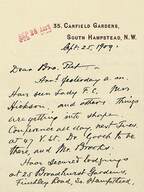 35, CANFIELD GARDENS,
SOUTH HAMPSTEAD, N.W.
Sept. 25, 1909.
Dear Bro.
yesterday a.m.
Have seen Lady F.C. Mrs
Hickson, and others. Things
are getting into shape.
Conference all day next Tues.
at 47 Dr. Gooch to be
there, and Mr Brooks.
Have secured lodgings
at 25 Broadhurst Gardens,
Finchley Road, So. Hampstead,